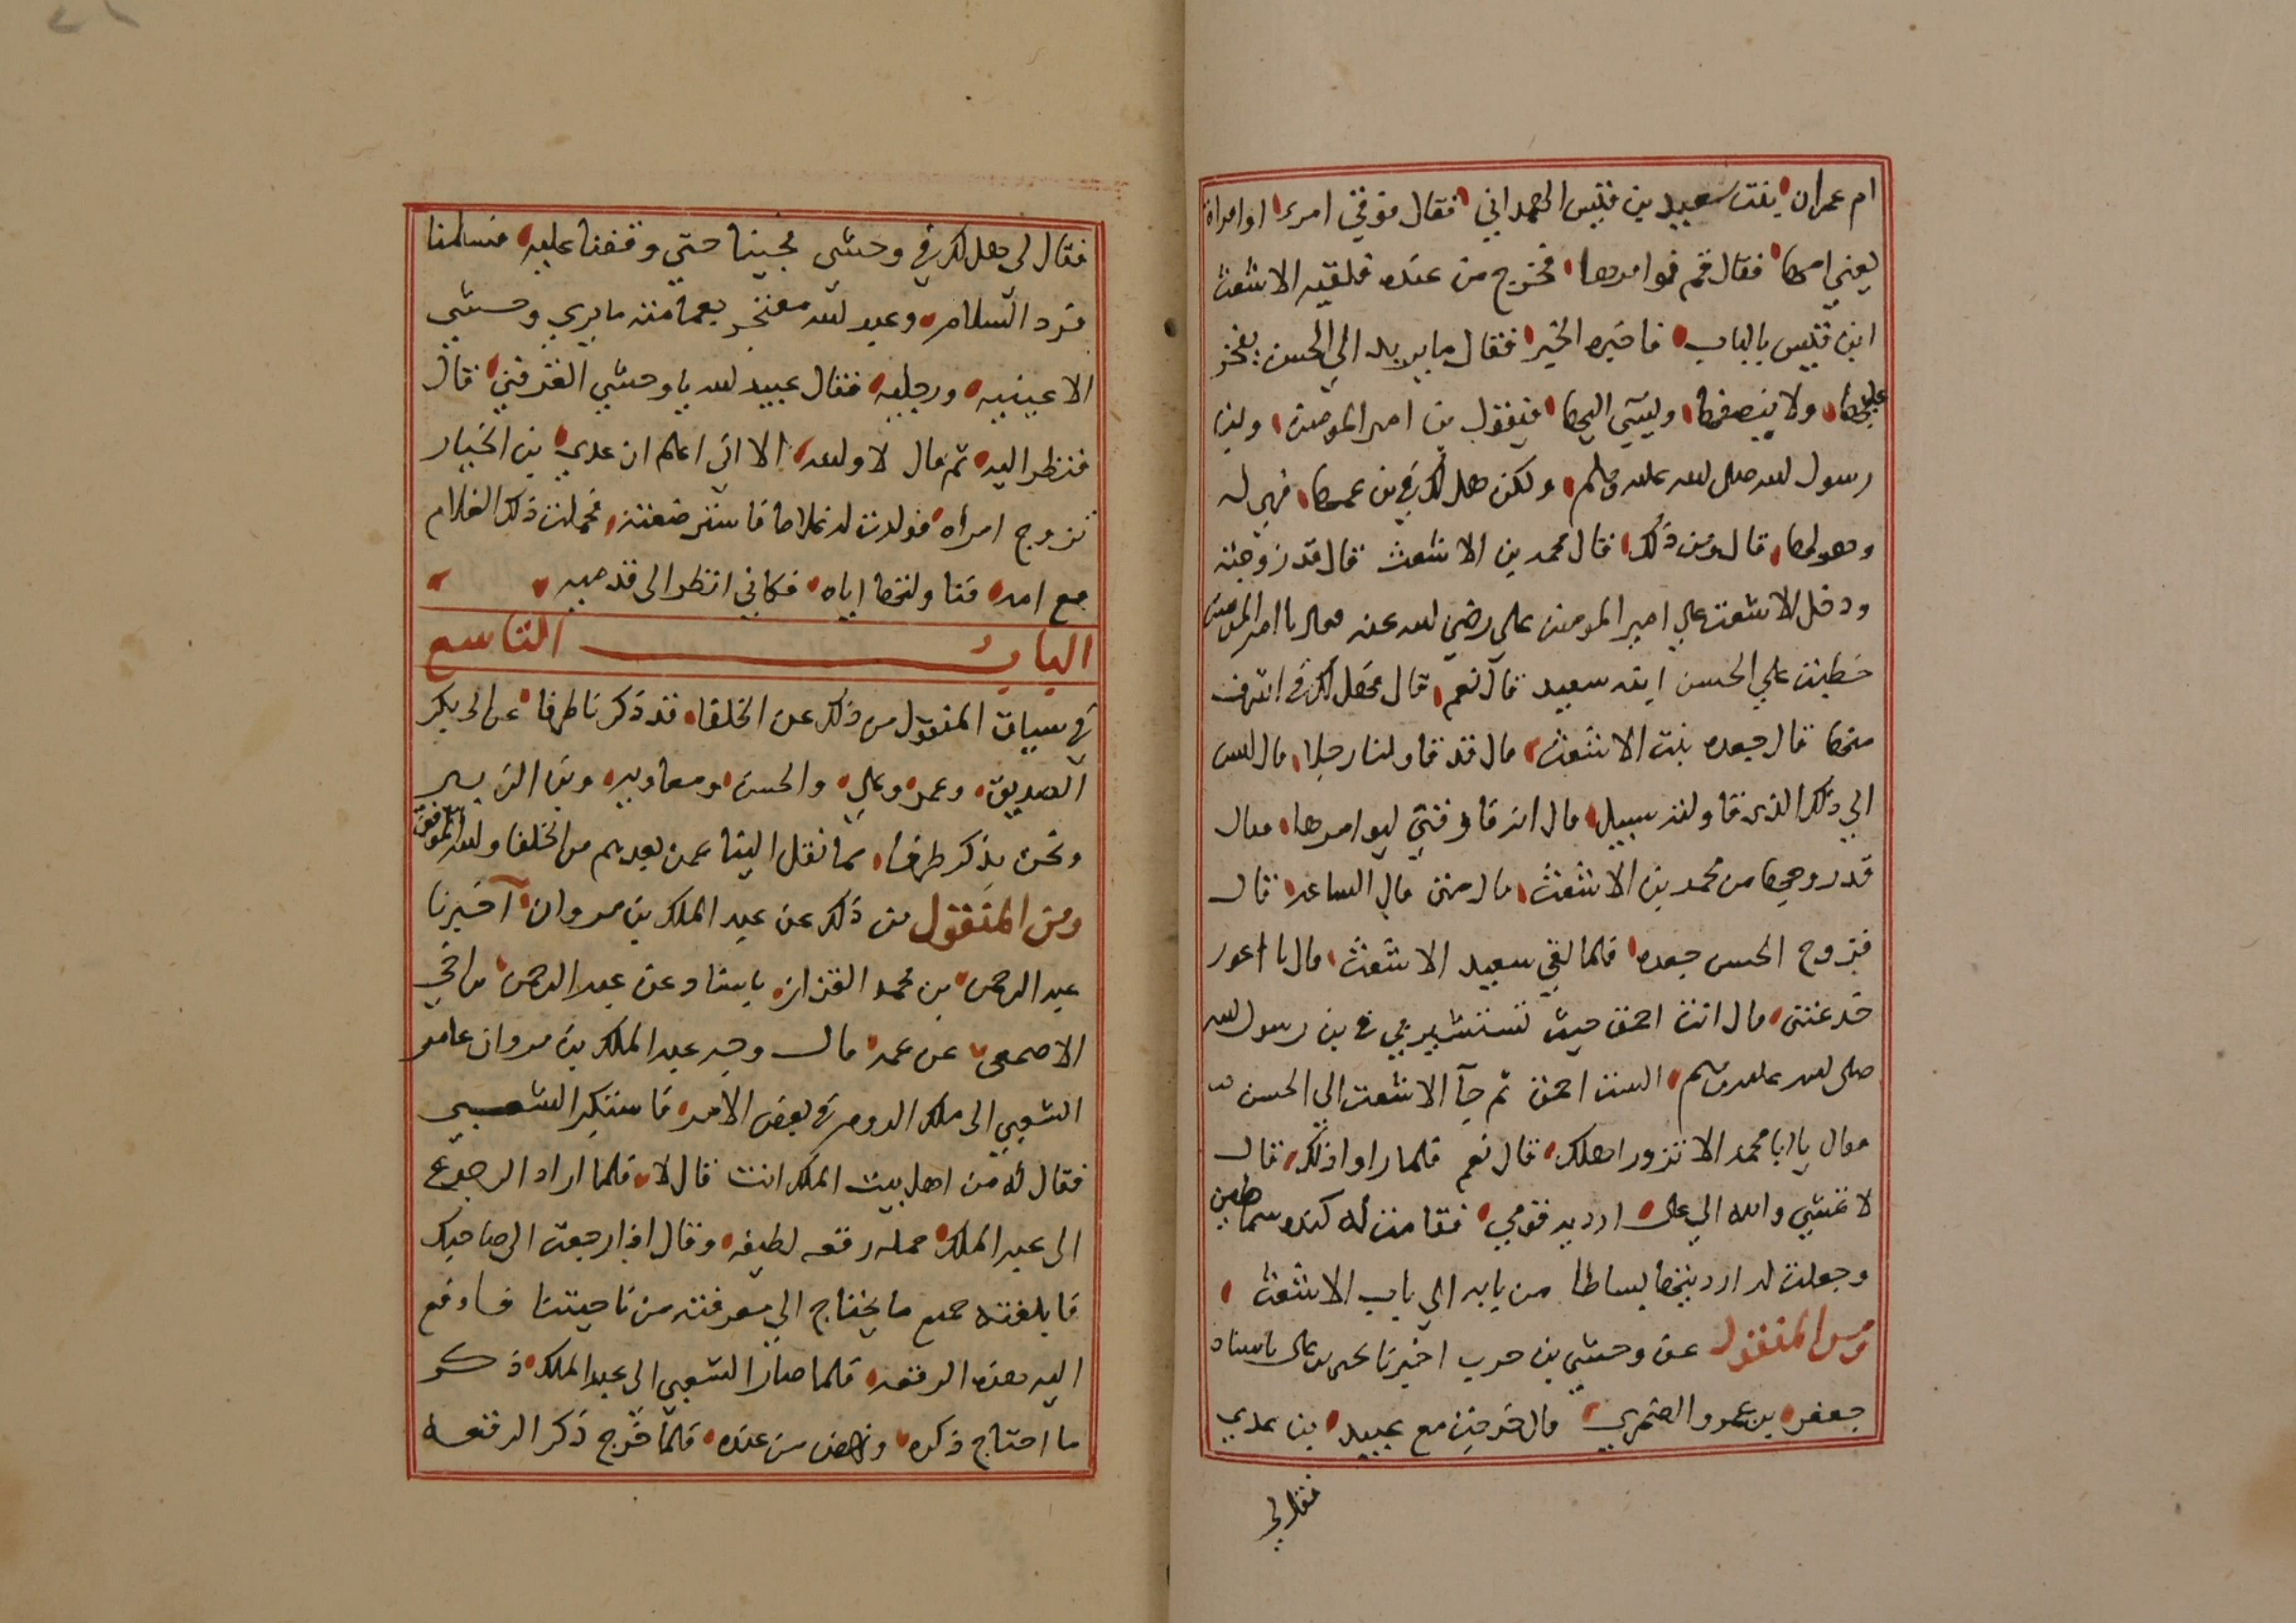 ام عمران بنت سعيد بن قيس الهمداني فقال فوقي امرء اوامراة
يعني امها فقال قم فوامرها فخرج من عنده فلقيه الاشعث
ابن قيس بالباب فاخبره الخبر فقال ما يريد الي الحسن يفخر
عليها ولا ينصفها ويسي اليها فيقول بن امير المومنين وبن
رسول الله صلى الله عليه وسلم ولكن هل لك في بن عمها فهي له
وهو لها قال ومن ذلك قال محمد بن الاشعث قال قد زوجته
ودخل الاشعث علي امير المومنين علي رضي الله عنه فقال يا امير المومنين
خطبت علي الحسن ابنه سعيد قال نعم قال فهل لك في اشرف
منها قال جعده بنت الاشعث قال قد قاولنا رجلا قال ليس
الي ذلك الذي قاولته سبيل قال انه فارقني ليوامرها فقال
قد زوجها من محمد بن الاشعث قال متي قال الساعه قال
فتزوج الحسن جعده فلما لقي سعيد الاشعث قال يا اعور
خدعتني قال انت احمق حيث تستشيرني في بن رسول الله
صلى الله عليه وسلم الست احمق ثم جآ الاشعث الي الحسن
فقال يا ابا محمد الا تزور اهلك قال نعم فلما اراد ذلك قال
لا تمشي والله الي علي اردية قومي فقامت له كنده سماطين
وجعلت له ارديتها بساطا من بابه الي باب الاشعث
ومن المنقول عن وحشي بن حرب اخبرنا يحيى بن علي باسناد
جعفر بن عمرو الضمري قال خرجت مع عبيد بن عدي
فقال لي
فقال لي هل لك في وحشي فجينا حتي وقفنا عليه فسلمنا
فرد السلام وعبيد الله معتجر بعمامته ما يري وحشي
الا عينيه ورجليه فقال عبيد الله يا وحشي اتعرفني قال
فنظر اليه ثم قال لا والله الا اني اعلم ان عدي بن الخيار
تزوج امرأه فولدت له غلاما فاسترضعته فحملت ذلك الغلام
مع امه فناولتها اياه فكاني انظر الى قدميه
الباب التاسع
في سياق المنقول من ذلك عن الخلفا قد ذكرنا طرفا عن ابي بكر
الصديق وعمر وعلي والحسن ومعاويه وبن الزبير
ونحن نذكر طرفا مما نقل الينا عمن بعدهم من الخلفا والله الموفق
ومن المنقول من ذلك عن عبد الملك بن مروان آخبرنا
عبد الرحمن بن محمد القزاز باسناد عن عبد الرحمن بن اخي
الاصمعي عن عمه قال وجه عبد الملك بن مروان عامر
الشعبي الى ملك الروم في بعض الامر فاستنكر الشعبي
فقال له من اهل بيت الملك انت قال لا فلما اراد الرجوع
الى عبد الملك حمله رقعه لطيفه وقال اذا رجعت الى صاحبك
فابلغته جميع ما يحتاج الي معرفته من ناحيتنا فادفع
اليه هذه الرقعه فلما صار الشعبي الى عبد الملك ذكر
ما احتاج ذكره ونهض من عنده فلما خرج ذكر الرقعه